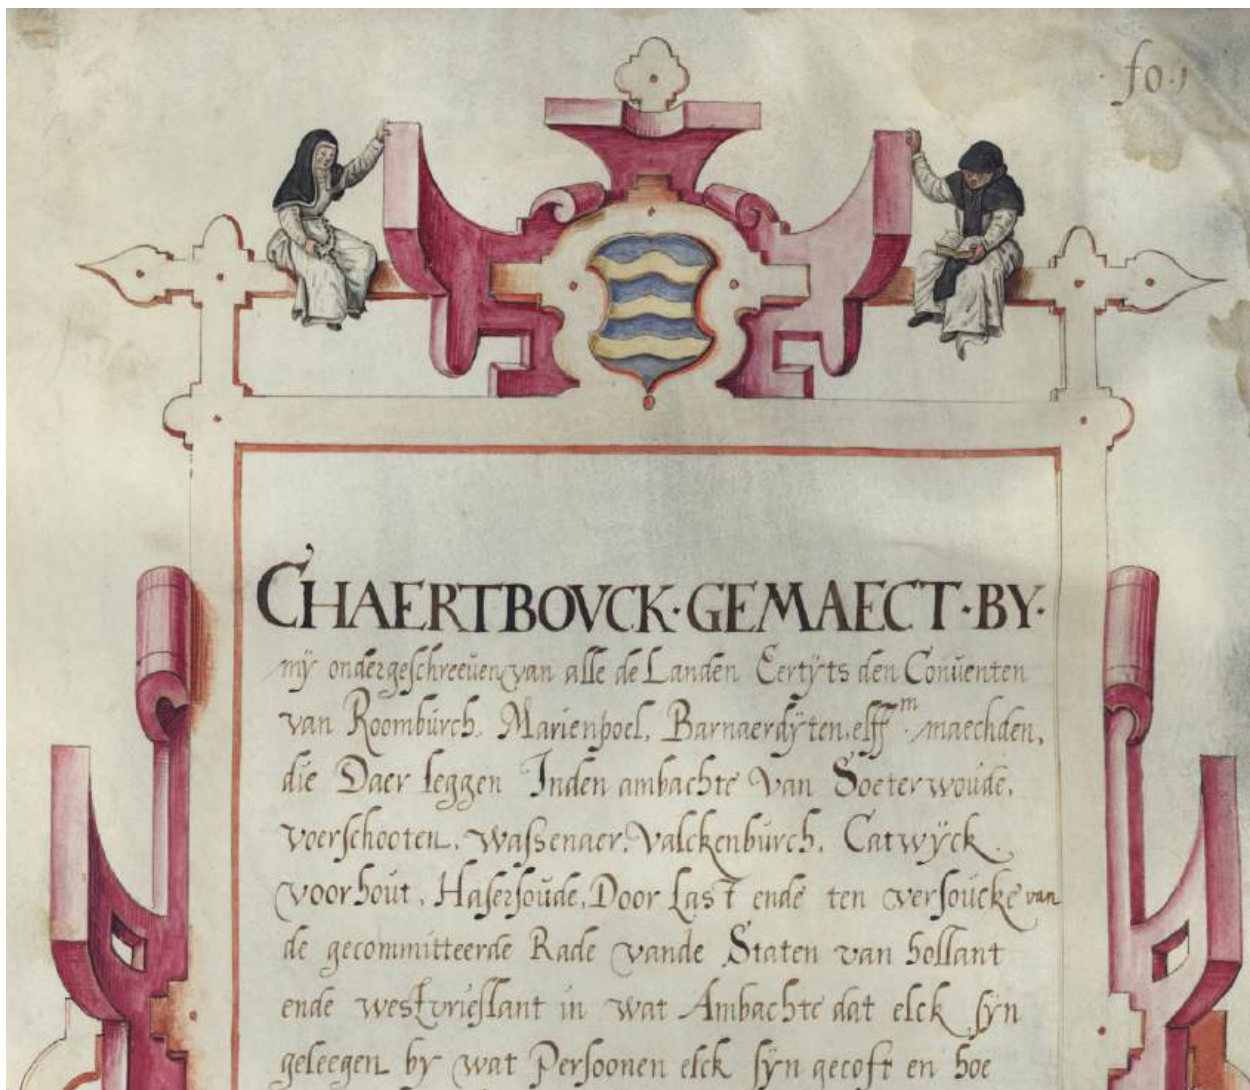 fo. 1
CHAERTBOVCK·GEMAECT·BY·
mÿ ondergeschreeuen van alle de Landen Eertÿts den Conuenten
van Roomburch, Marienpoel, Barnaerdÿten, elff m maechden,
die Daer leggen Inden ambachte van Soeterwoude,
voerschooten, wassenaer, Valckenburch, Catwÿck,
voorhout, Haserssoude, Door Last ende ten versoucke van
de gecommitteerde Rade vande Staten van hollant
ende westvrieslant in wat Ambachte dat elck sÿn
geleegen by wat Persoonen elck sÿn gecoft en hoe